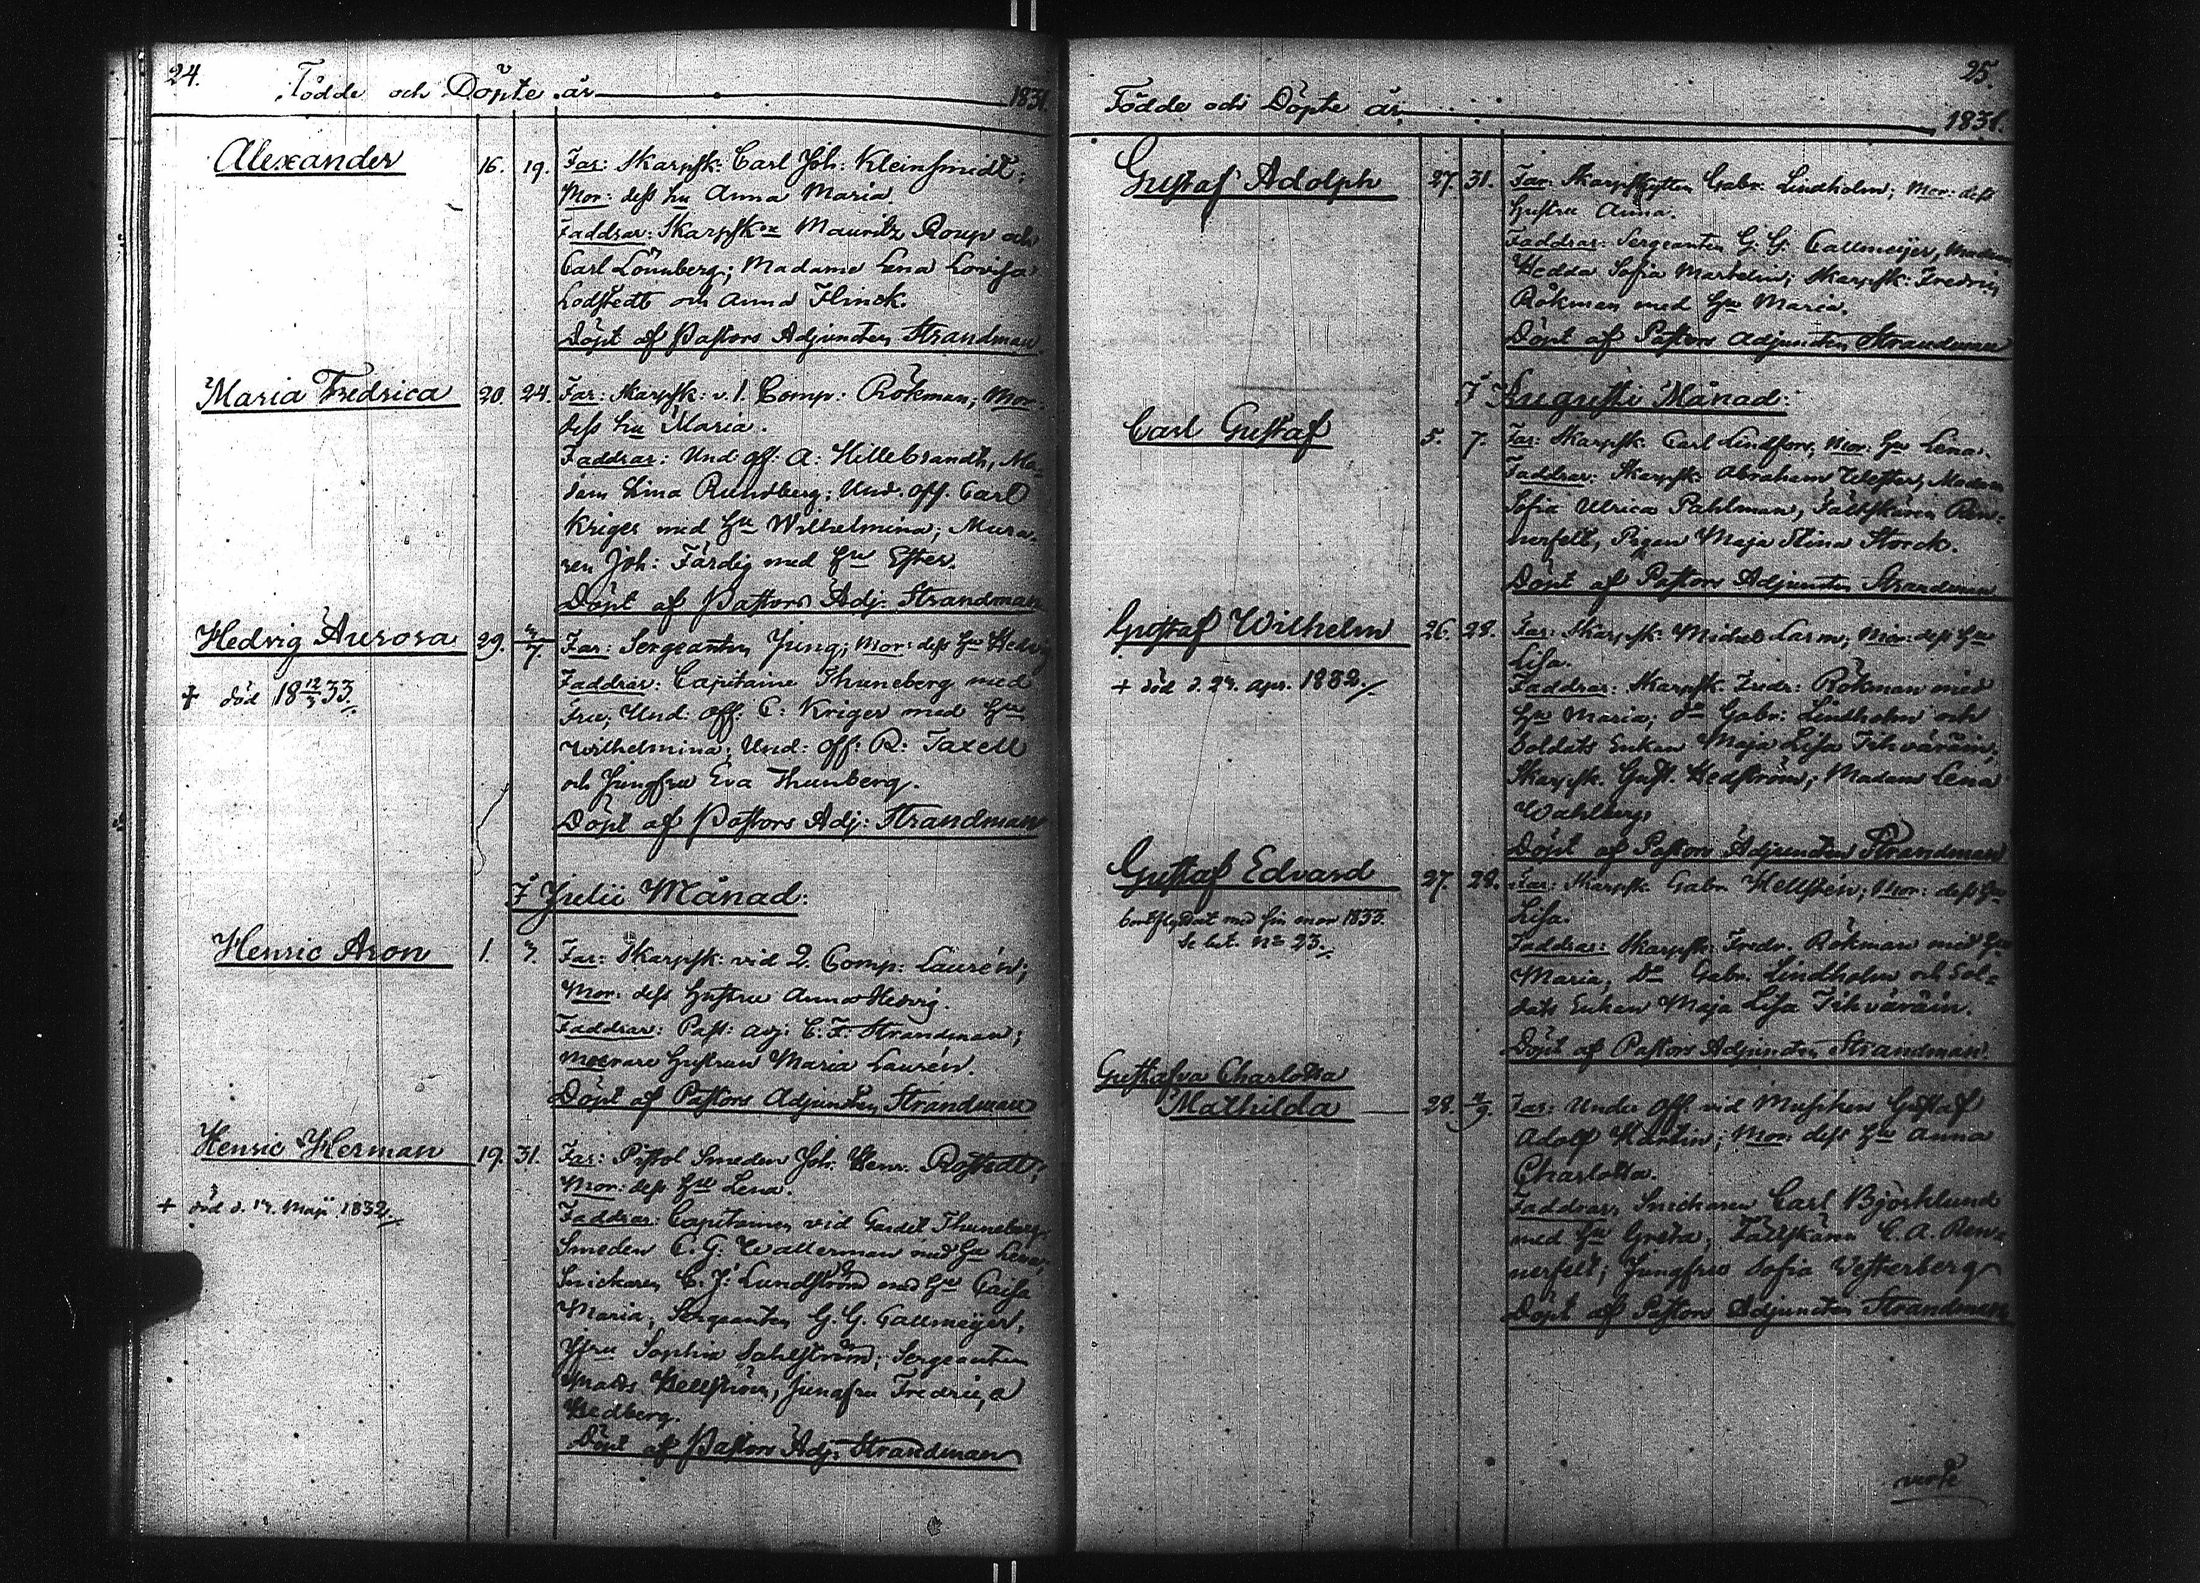 24.
Födde och Döpte år 1831.
Alexander 16. 19. Far: Skarpsk: Carl Joh: Kleinsmidt;
Mor: dess hu Anna Maria.
Faddrar: Skarpsk:ne Mauritz Roup och
Carl Lönnberg; Madame Lena Lovisa
Lodstedt och Anna Flinck.
Döpt af Pastors Adjuncten Strandman
Maria Fredrica 20. 24. Far: Skarpsk: v. 1. Comp: Rökman; Mor:
dess hu Maria.
Faddrar: Und: off: A: Hillebrandt, Ma-
dam Lina Rundberg; Und. off. Carl
Kriger med Hu Wilhelmina; Mura-
ren Joh: Färdig med Hu Ester.
Döpt af Pastors Adj: Strandman
Hedvig Aurora 29. 4/7. Far: Sergeanten Jung; Mor: dess Hu Hedvig
+ död 18 12/3 33.
Faddrar: Capitaine Thuneberg med
Fru; Und: off: C: Kriger med Hu
Wilhelmina; Und: off: R: Taxell
och Jungfru Eva Thunberg.
Döpt af Pastors Adj: Strandman
I Julii Månad:
Henric Aron 1. 7. Far: Skarpsk: vid 2. Comp: Laurén;
Mor: dess Hustru Anna Hedvig.
Faddrar: Past: Adj: C. F. Strandman;
Hustrun Maria Laurén.
Döpt af Pastors Adjuncten Strandman
Henric Herman 19. 31. Far: Pistol Smeden Joh. Henr. Rostedt;
Mor: dess Hu Lena.
+ död d. 17. Maji 1832.
Faddrar: Capitainen vid Gardet Thuneberg,
Smeden C. G. Wallerman med Hu Lena,
Snickaren C. J. Lundström med Hu Caisa
Maria, Sergeanten G. G. Callmeijer,
Jfru Sophia Sahlström; Sergeanten
Matts Hellström, Jungfru Fredrica
Hedberg.
Döpt af Pastors Adj: Strandman
25.
Födde och Döpte år 1831.
Gustaf Adolph 27. 31. Far: Skarpskytten Gabr. Lindholm; Mor: dess
Hustru Anna.
Faddrar: Sergeanten G. G. Callmeijer, Madam
Hedda Sofia Markelin; Skarpsk: Fredric
Rökman med Hu Maria.
Döpt af Pastors Adjuncten Strandman
I Augusti Månad:
Carl Gustaf 5. 7. Far: Skarpsk: Carl Lindfors, Mor: Hu Lena.
Faddrar: Skarpsk: Abraham Wester, Madam
Sofia Ulrica Pahlman, Fältskären Ren-
nerfelt, Pigan Maja Stina Storck.
Döpt af Pastors Adjuncten Strandman
Gustaf Wilhelm 26. 28. Far: Skarpsk: Michel Larm; Mor: dess Hu
Lisa.
+ död d. 24. apr. 1832.
Faddrar: Skarpsk: Fredr: Rökman med
Hu Maria; do Gabr: Lindholm och
Soldats Enkan Maja Lisa Tihväräin,
Skarpsk. Gust. Hedström; Madam Lena
Wahlberg.
Döpt af Pastors Adjuncten Strandman
Gustaf Edvard 27. 28. Far: Skarpsk: Gabr Hellstén; Mor: dess Hu
Lisa.
bortflyttat med sin mor 1833.
Se bet. No 23.
Faddrar: Skarpsk: Fredr. Rökman med Hu
Maria; Do Gabr. Lindholm och Sol-
dats Enkan Maja Lisa Tihväräin.
Döpt af Pastors Adjuncten Strandman
Gustafva Charlotta
Mathilda 28. 4/9. Far: Under off. vid Musiken Gustaf
Adolf Martin; Mor: dess Hu Anna
Charlotta.
Faddrar: Snickaren Carl Björklund
med Hu Greta, Fältskären C. A. Ren-
nerfelt; Jungfru Sofia Vetterberg
Döpt af Pastors Adjuncten Strandman
verte